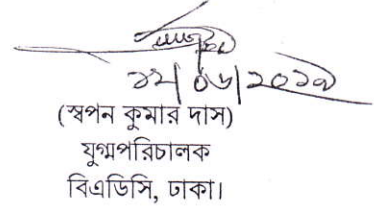 ১২/০৬/২০১৯
(স্বপন কুমার দাস)
যুগ্মপরিচালক
বিএডিসি, ঢাকা।